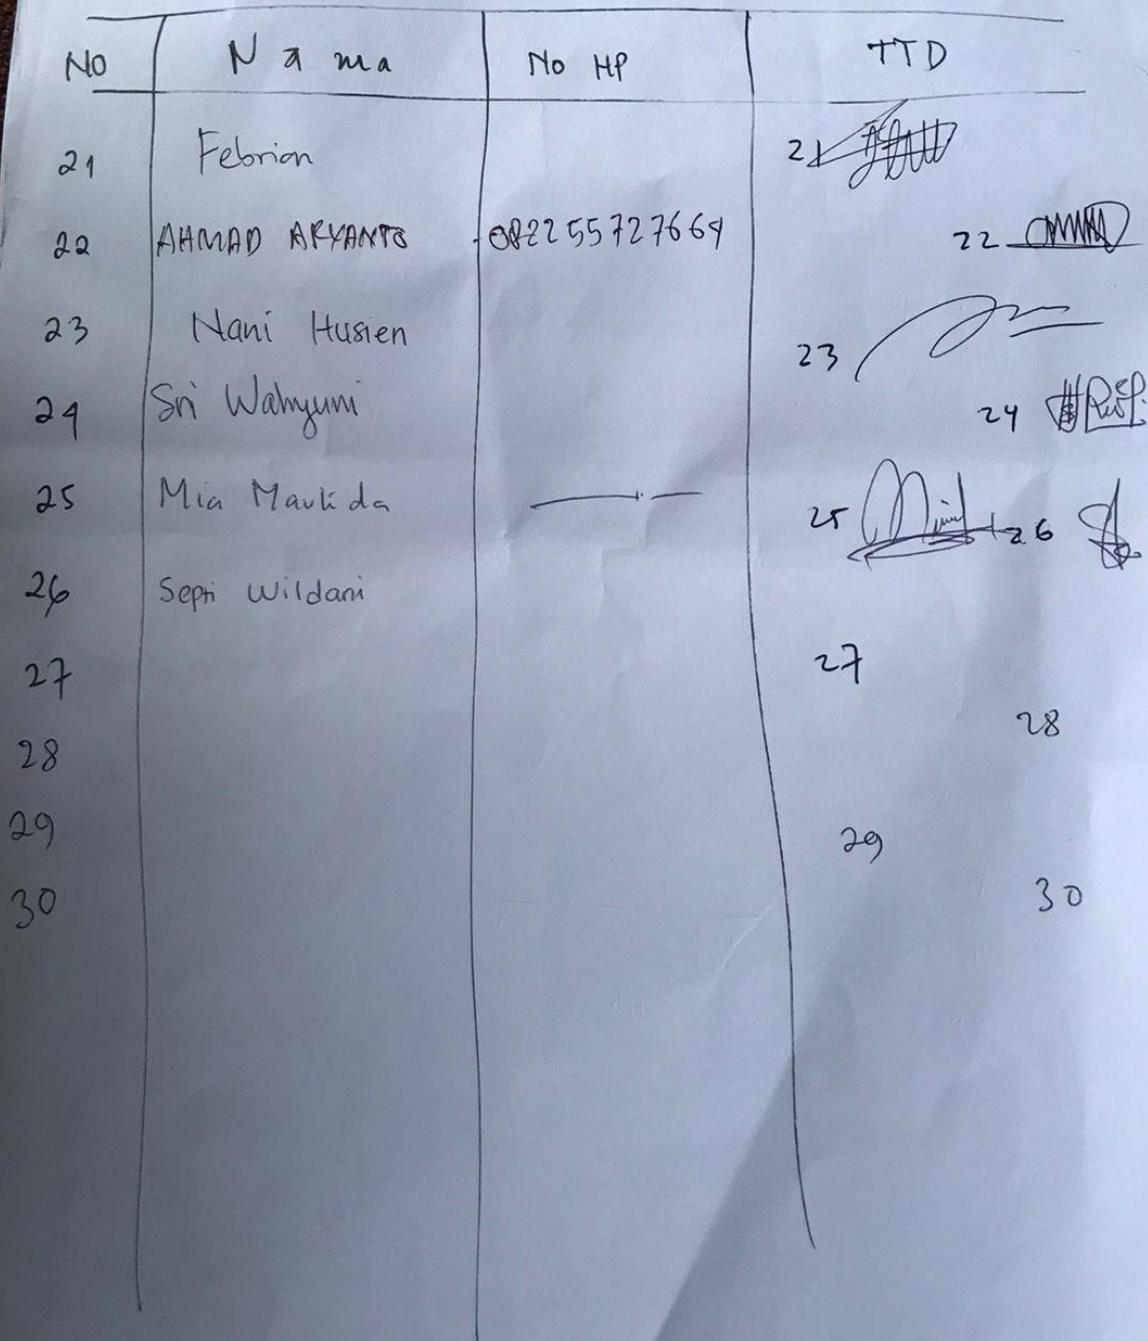 No Nama No HP TTD
21 Febrian 21
22 AHMAD ARYANTO 082255727664 22
23 Nani Husien 23
24 Sri Wahyuni 24
25 Mia Maulida 25 26
26 Septi Wildani
27 27
28 28
29 29
30 30